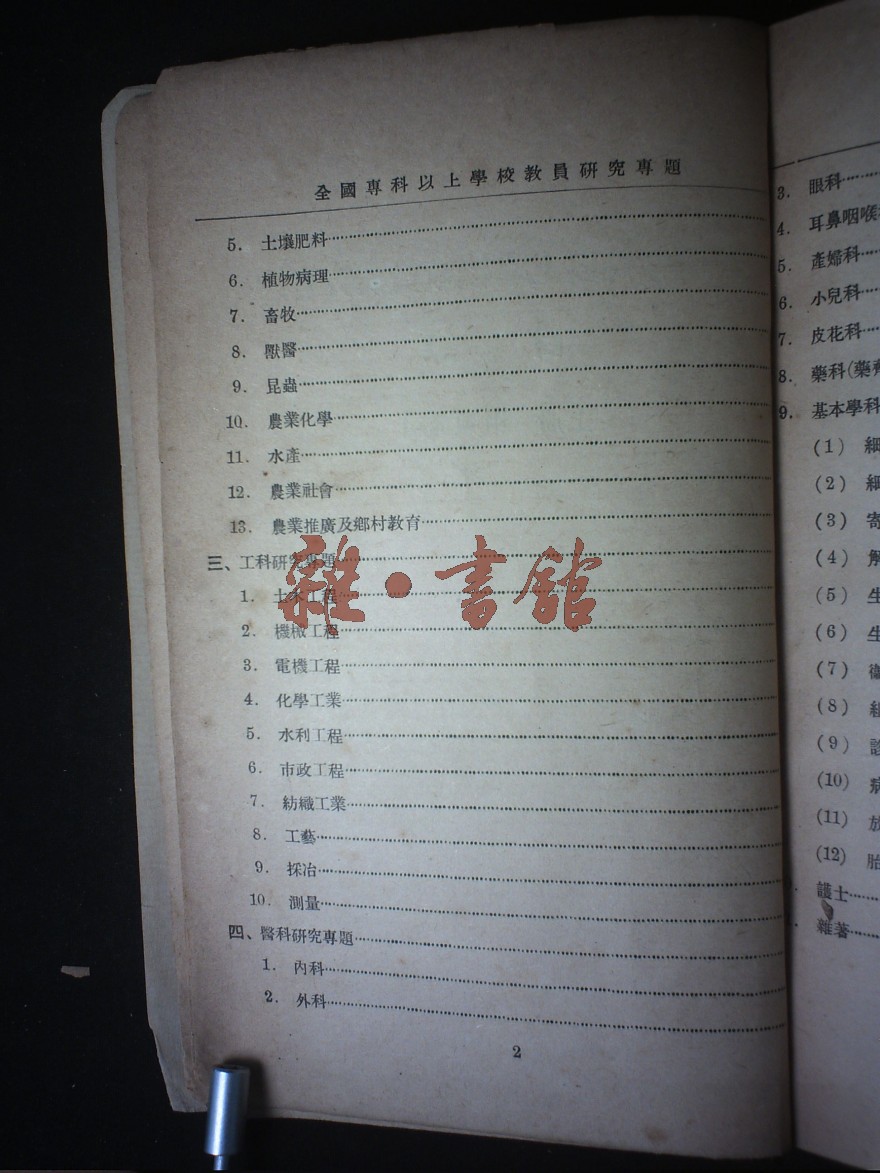 全國專科以上學校教員研究專題
5. 土壤肥料
6. 植物病理
7. 畜牧
8. 獸醫
9. 昆蟲
10. 農業化學
11. 水產
12. 農業社會
13. 農業推廣及鄉村教育
三、工科研究專題
1. 土木工程
2. 機械工程
3. 電機工程
4. 化學工業
5. 水利工程
6. 市政工程
7. 紡織工業
8. 工藝
9. 採冶
10. 測量
四、醫科研究專題
1. 內科
2. 外科
2
雜·書館
3. 眼科
4. 耳鼻咽喉
5. 產婦科
6. 小兒科
7. 皮花科
8. 藥科(藥
9. 基本學科
(1) 細
(2) 細
(3) 寄
(4) 解
(5) 生
(6) 生
(7)
(8) 組
(9) 診
(10) 病
(11) 放
(12) 胎
護士
雜著